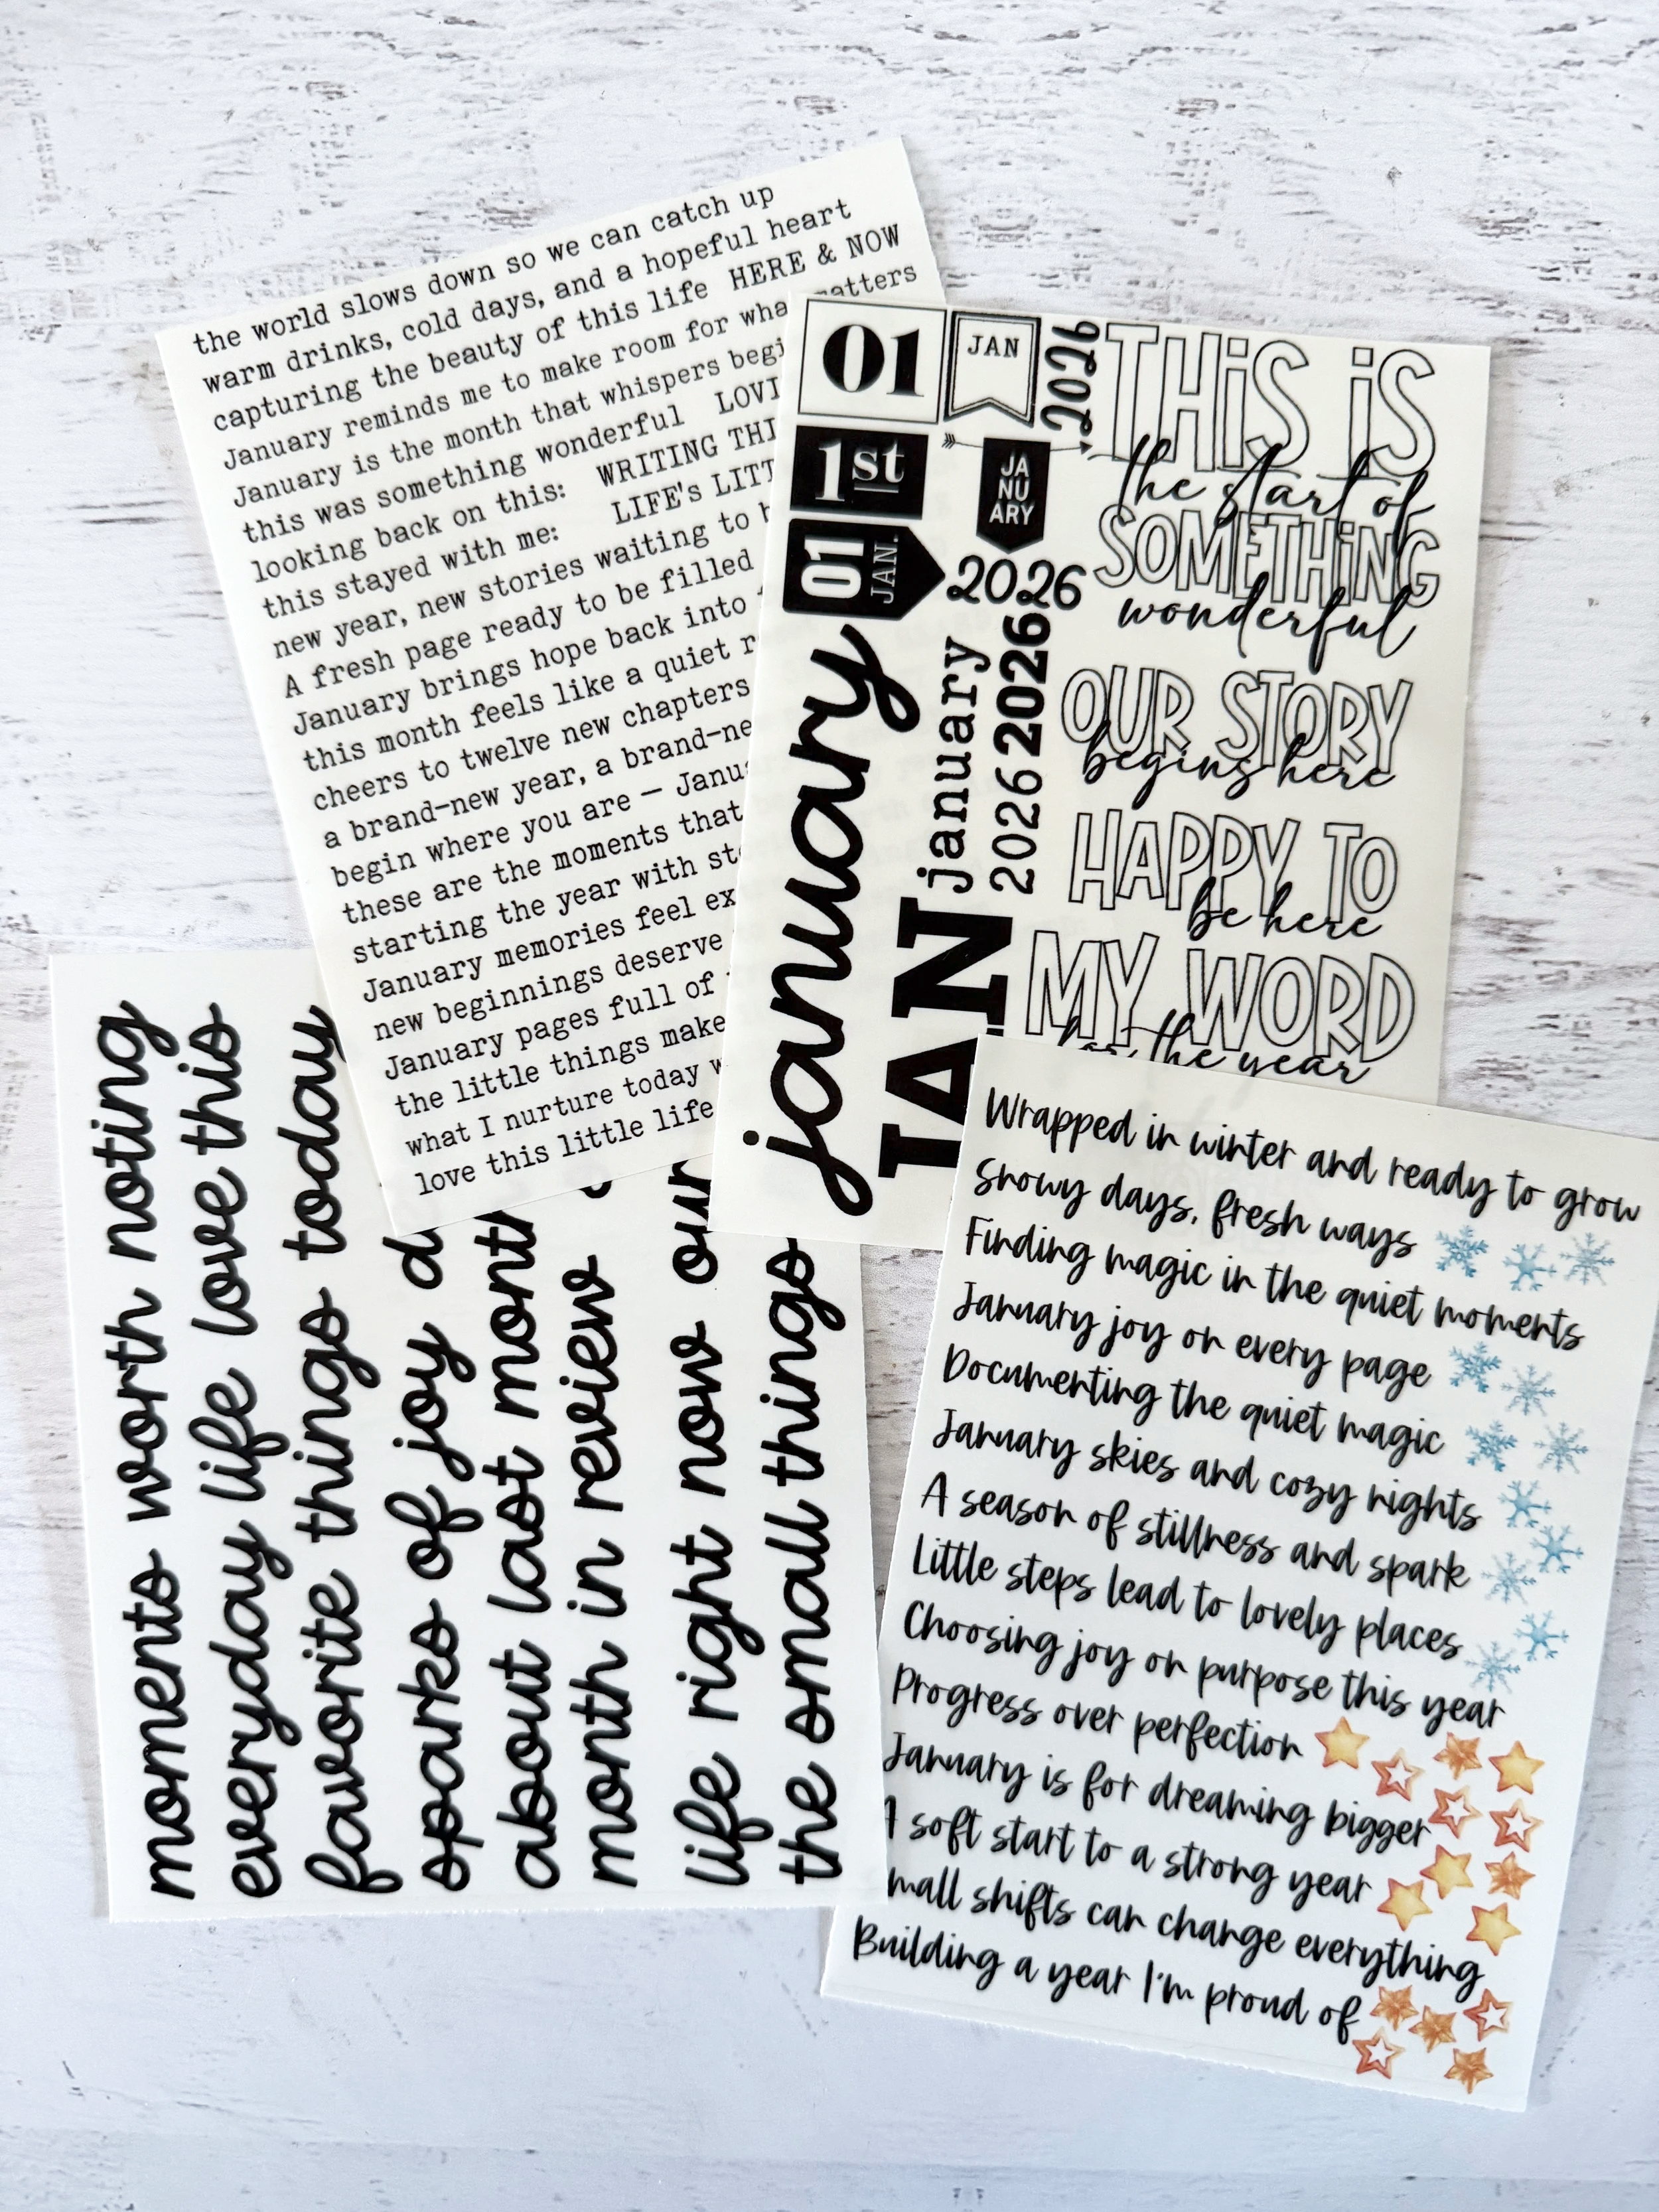 the world slows down so we can catch up
warm drinks, cold days, and a hopeful heart
capturing the beauty of this life HERE & NOW
January reminds me to make room for what matters
January is the month that whispers
this was something wonderful
looking back on this: WRITING
this stayed with me: LIFE's
new year, new stories waiting to
A fresh page ready to be filled
January brings hope back into
this month feels like a quiet
cheers to twelve new chapters
a brand-new year, a
begin where you are —
these are the moments that
starting the year with
January memories feel
new beginnings deserve
January pages full of
the little things make
what I nurture today
love this little life
01
JAN
2026
1st
JA
NU
ARY
01
JAN.
2026
january
january
2026 2026
JAN
THiS iS
the start of
SOMETHiNG
wonderful
OUR STORY
begins here
HAPPY TO
be here
MY WORD
for the year
moments worth noting
everyday life love this
favorite things today
sparks of joy
about last month
month in review
life right now our
the small things
Wrapped in winter and ready to grow
Snowy days, fresh ways
Finding magic in the quiet moments
January joy on every page
Documenting the quiet magic
January skies and cozy nights
A season of stillness and spark
Little steps lead to lovely places
Choosing joy on purpose this year
Progress over perfection
January is for dreaming bigger
A soft start to a strong year
mall shifts can change everything
Building a year I'm proud of